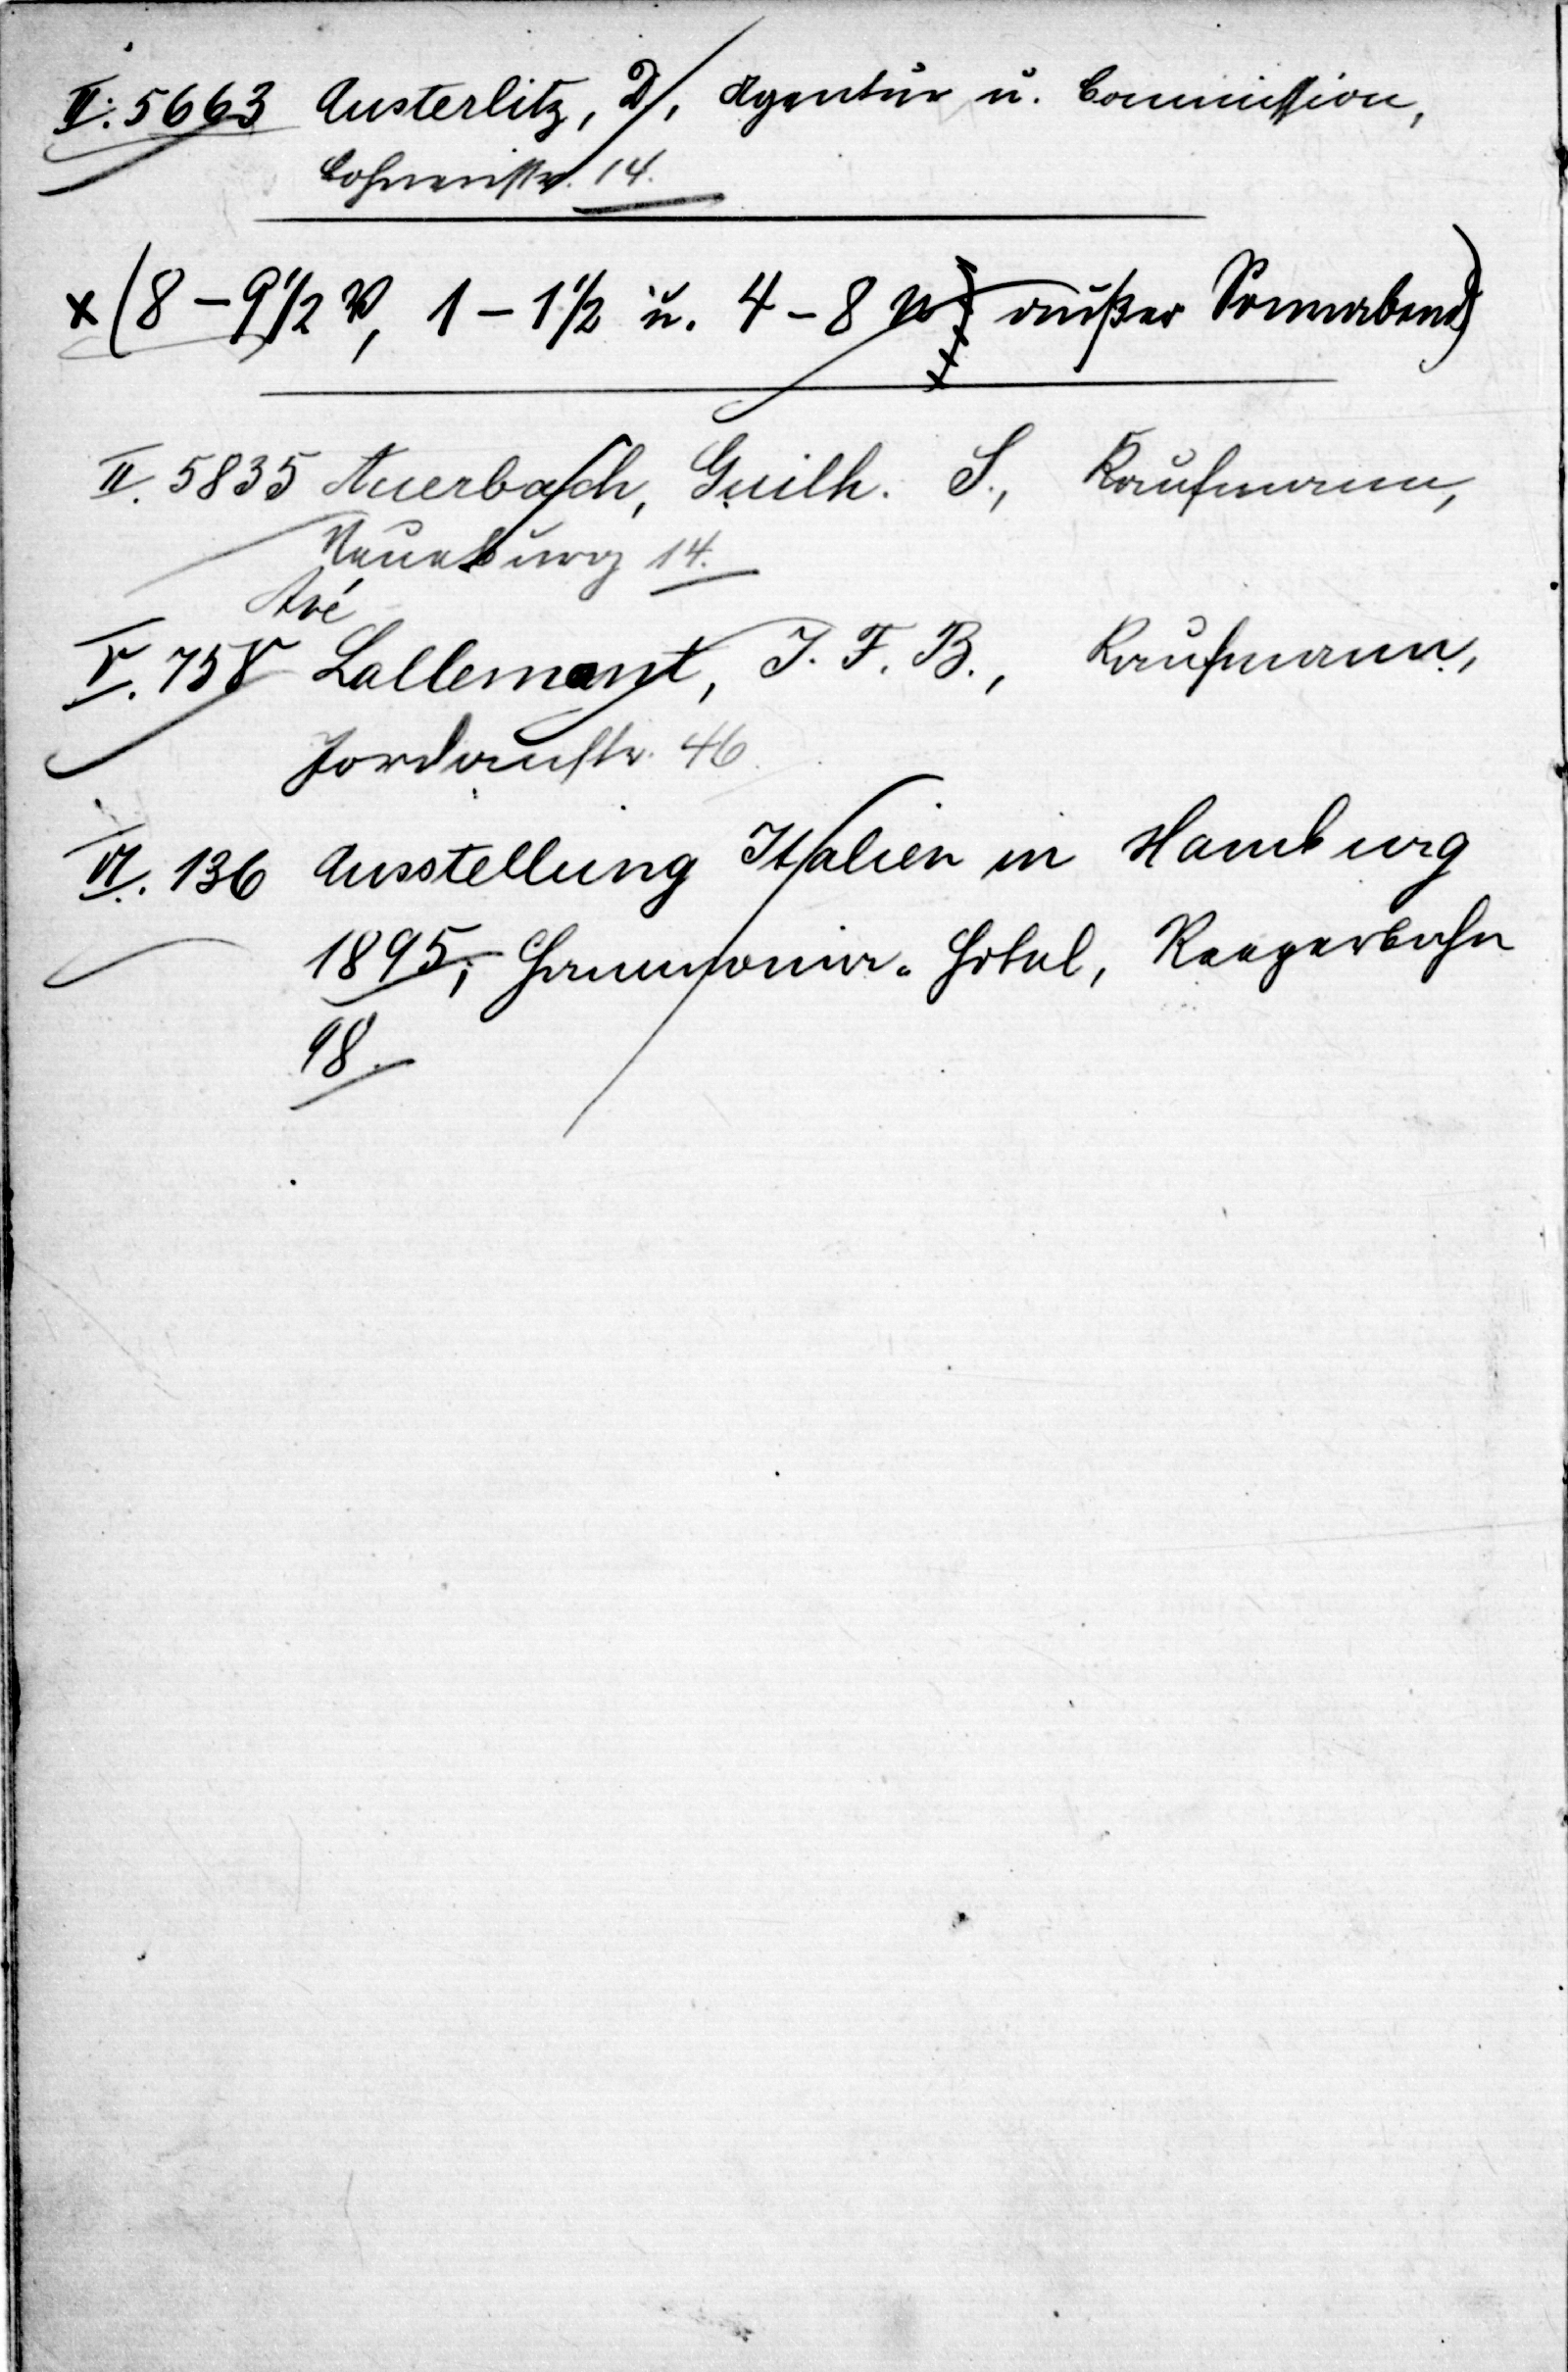 II. 5663 Austerlitz, D., Agentur u. Commission,
Bohnenstr. 14.
x (8 – 9 1/2 V, 1 – 1 1/2 u. 4 – 8 N) außer Sonnabend)
II. 5835 Auerbach, Guilh. S., Kaufmann,
Neueburg 14.
Avé
V. 758 Lallemant, J. F. B., Kaufmann,
Jordanstr. 46.
VI. 136 Ausstellung Italien in Hamburg
1895, Hammonia-Hotel, Reeperbahn
98.